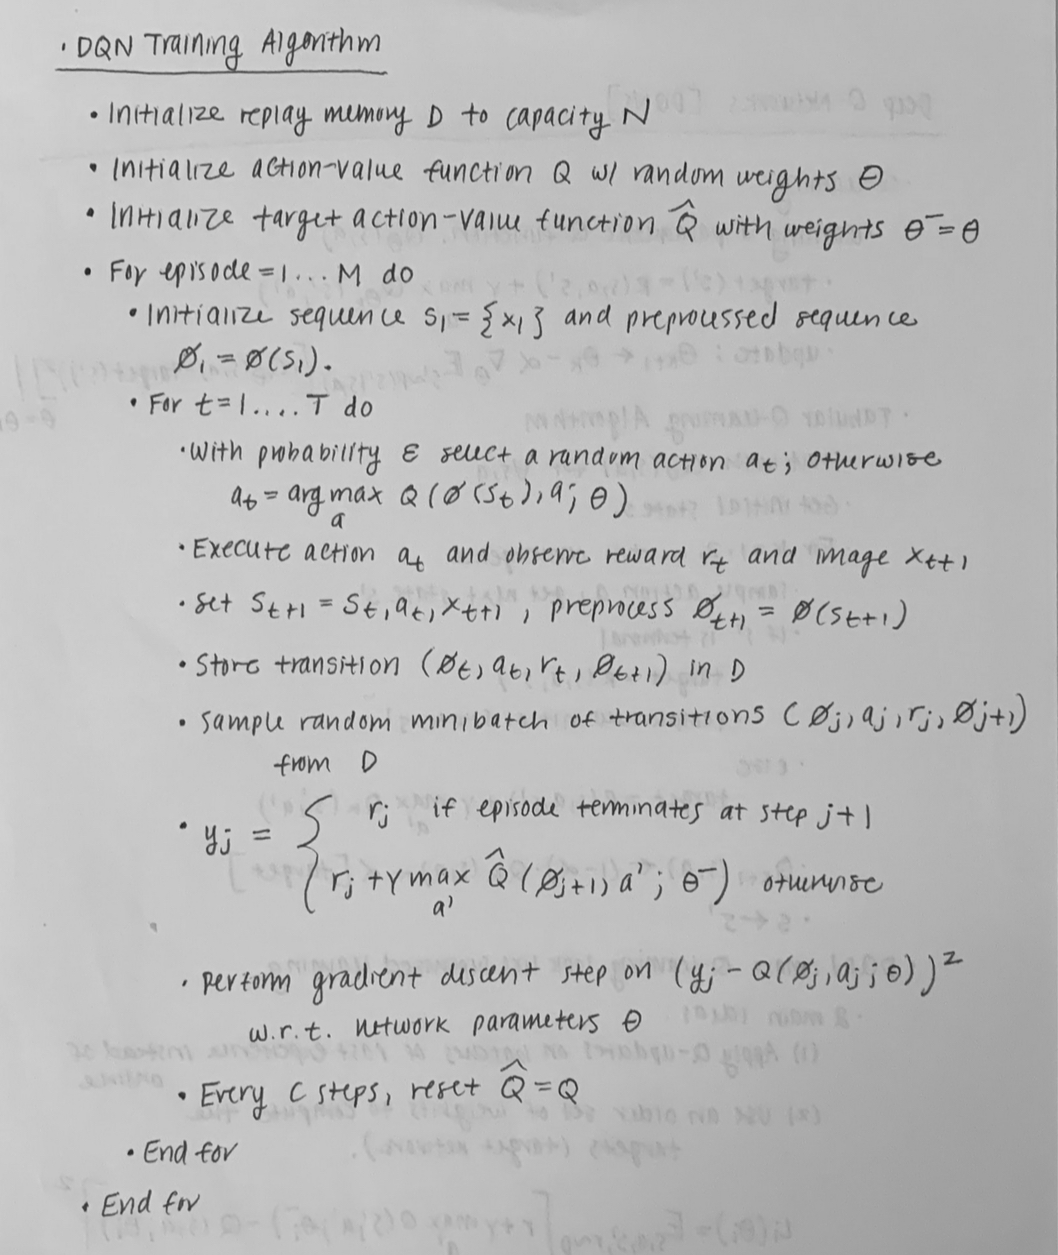 · DQN Training Algorithm
• Initialize replay memory D to capacity N
• Initialize action-value function Q w/ random weights θ
• Initialize target action-value function Q̂ with weights θ⁻ = θ
• For episode = 1 ... M do
• Initialize sequence s₁ = {x₁} and preprocessed sequence
ø₁ = ø(s₁).
• For t = 1.... T do
• With probability ε select a random action aₜ, otherwise
aₜ = arg max_a Q(ø(sₜ), a; θ)
• Execute action aₜ and observe reward rₜ and image xₜ₊₁
• Set sₜ₊₁ = sₜ, aₜ, xₜ₊₁, preprocess øₜ₊₁ = ø(sₜ₊₁)
• Store transition (øₜ, aₜ, rₜ, øₜ₊₁) in D
• Sample random minibatch of transitions (øⱼ, aⱼ, rⱼ, øⱼ₊₁)
from D
• yⱼ = { rⱼ if episode terminates at step j+1
rⱼ + γ max_a' Q̂(øⱼ₊₁, a'; θ⁻) otherwise
• Perform gradient descent step on (yⱼ - Q(øⱼ, aⱼ; θ))²
w.r.t. network parameters θ
• Every C steps, reset Q̂ = Q
• End for
• End for